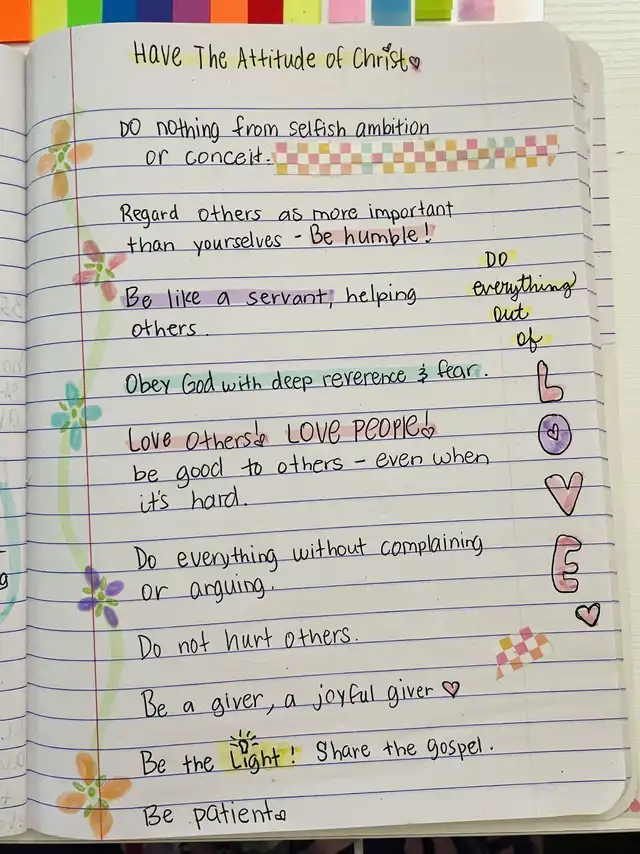 Have The Attitude of Christ
DO nothing from selfish ambition
or conceit.
Regard others as more important
than yourselves - Be humble!
Be like a servant, helping
others.
Obey God with deep reverence & fear.
Love Others! LOVE PEOPLE!
be good to others - even when
it's hard.
Do everything without complaining
or arguing.
Do not hurt others.
Be a giver, a joyful giver
Be the Light! Share the gospel.
Be patient
DO
everything
out
of
L
O
V
E